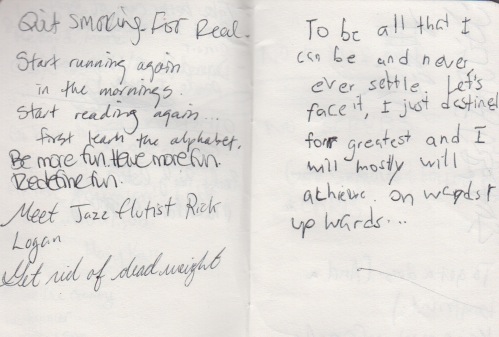 Quit Smoking For Real.
Start running again
in the mornings.
Start reading again...
first learn the alphabet.
Be more fun. Have more fun.
Redefine fun.
Meet Jazz flutist Rick
Logan
Get rid of dead weight
To be all that I
can be and never
ever settle. Let's
face it, I just destined
for greatest and I
will mostly will
achieve. on wards &
up wards...